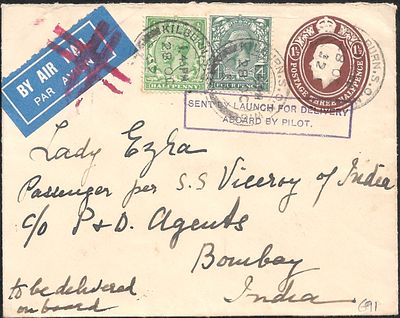 BY AIR MAIL
PAR AVION
KILBURN
28 OC
32
HALFPENNY
FOURPENCE
POSTAGE THREE HALFPENCE
KILBURN.S.O.
28 OC
32
SENT BY LAUNCH FOR DELIVERY
ABOARD BY PILOT.
Lady Ezra
Passenger per S.S Viceroy of India
c/o P & O. Agents
Bombay
India.
to be delivered
on board